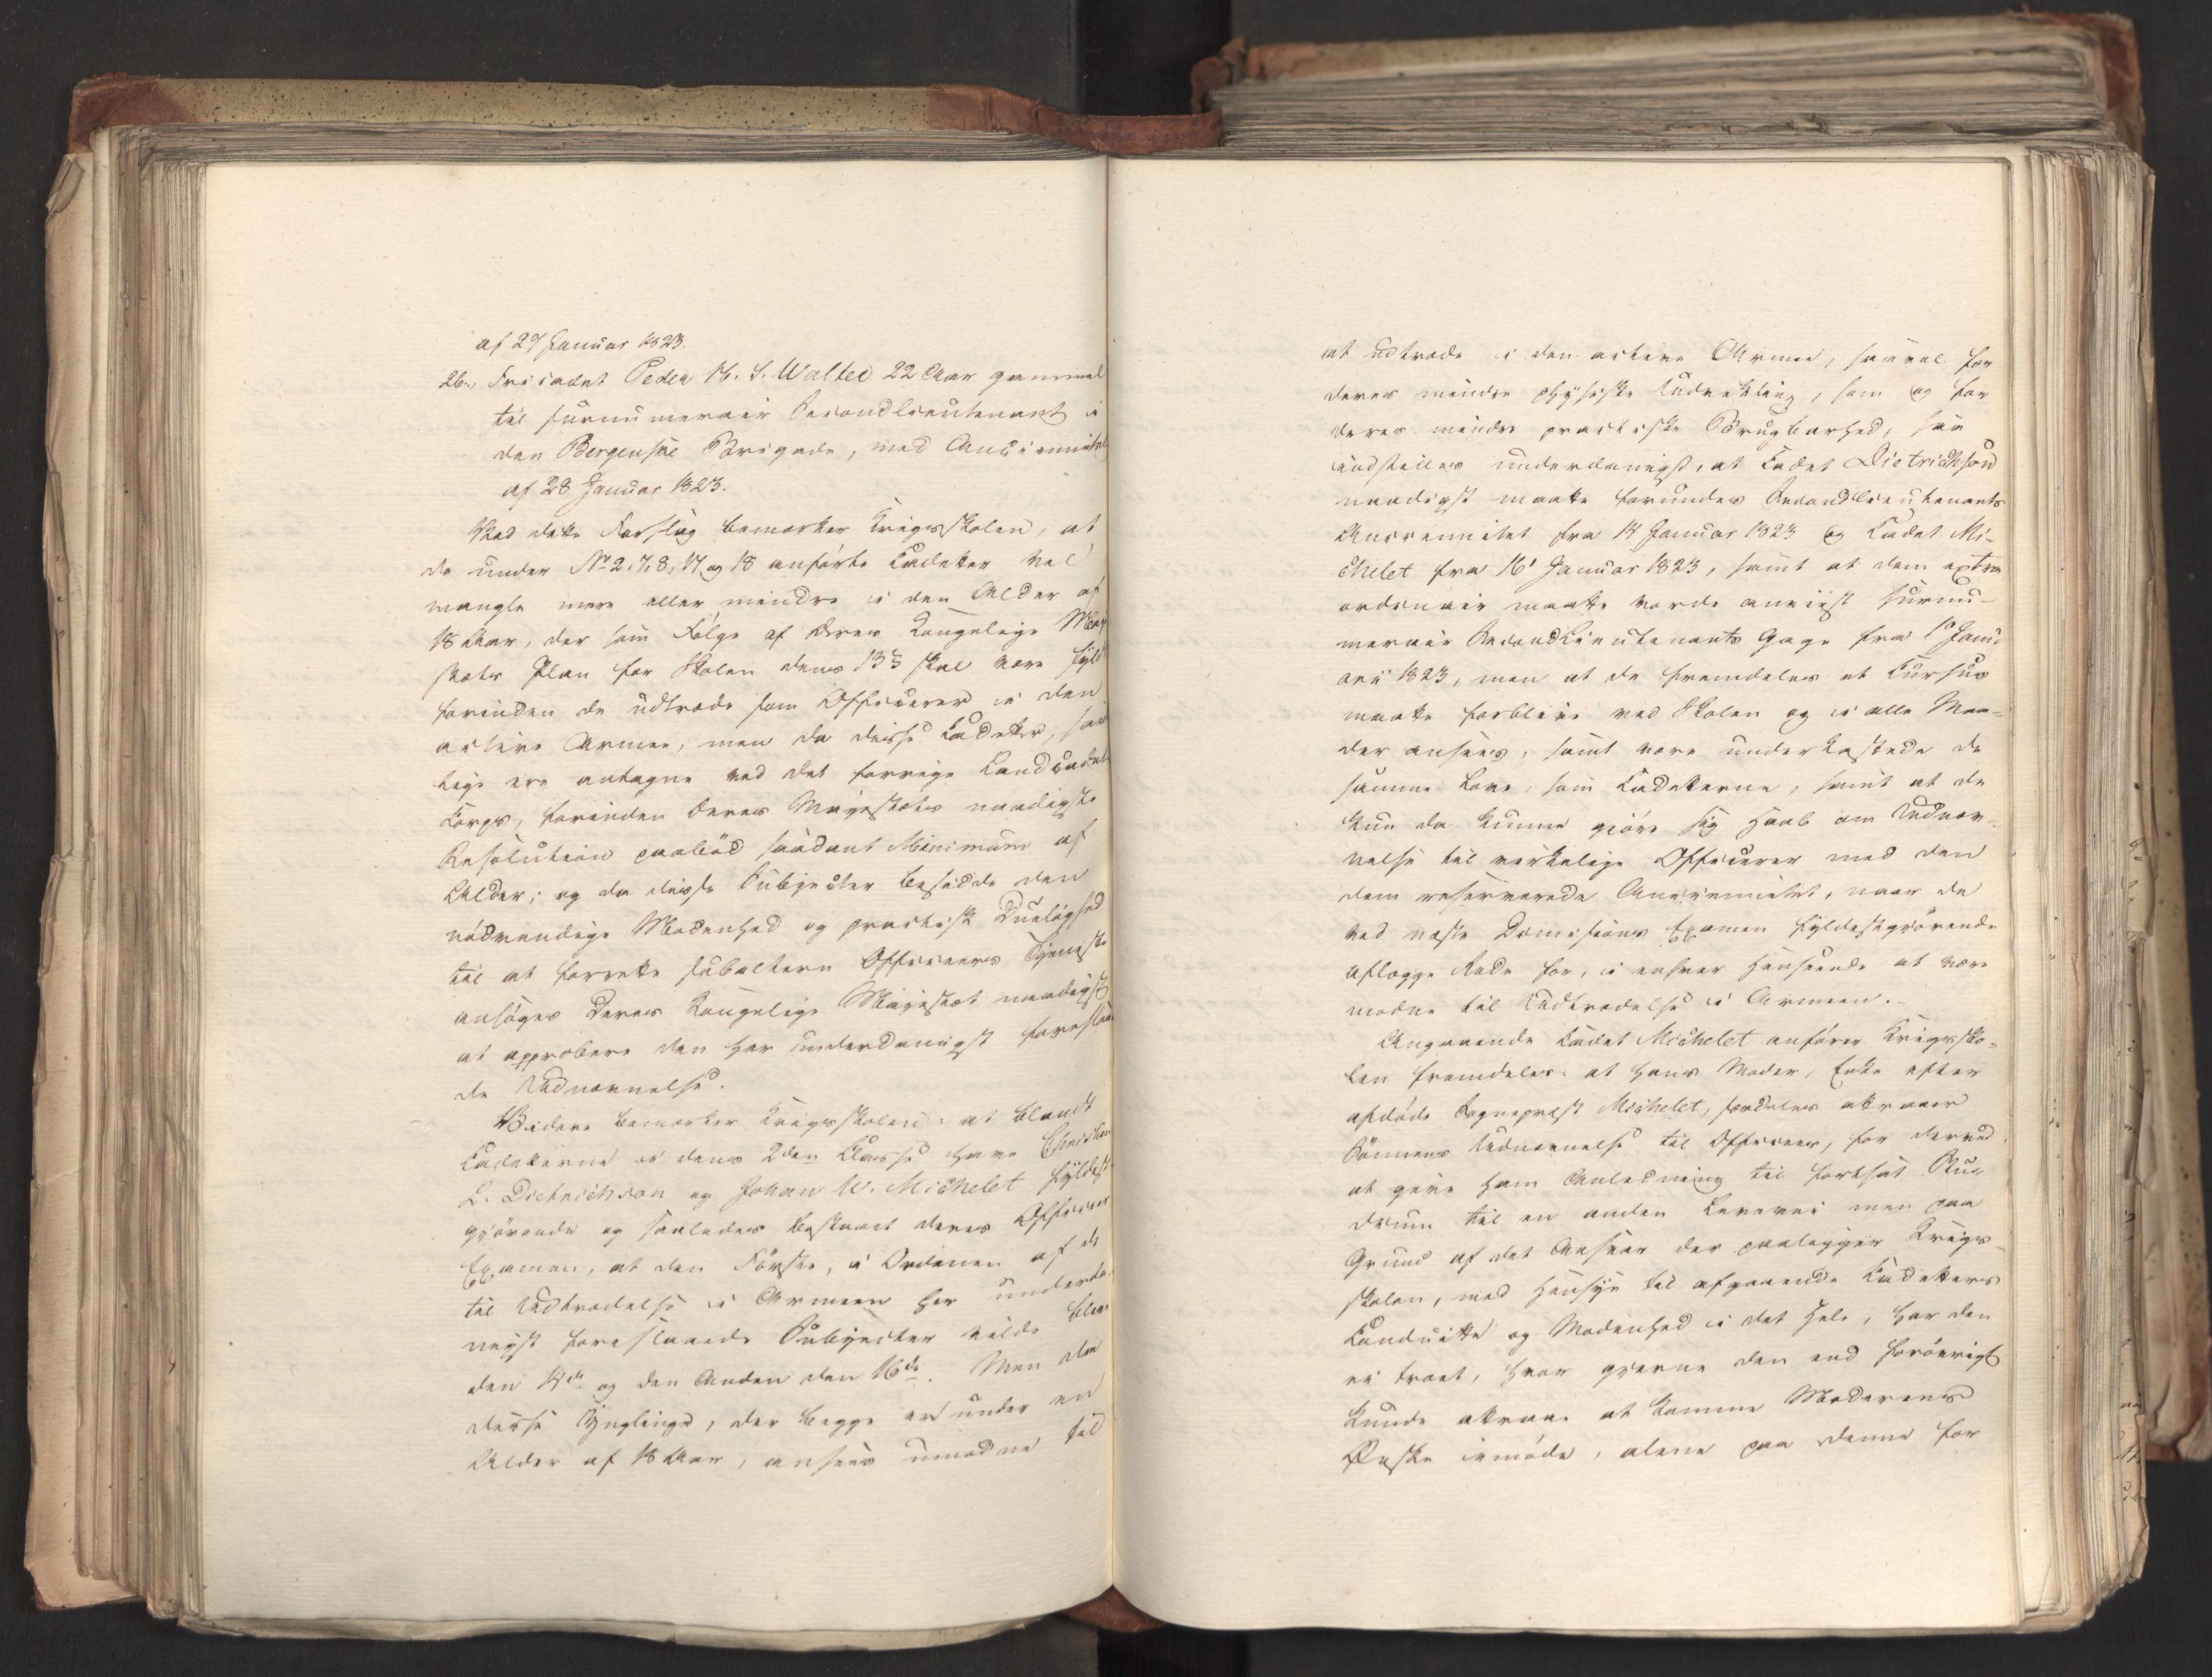 af 27 Januar 1823.
26., Fricadet Peder H. S. Walter 22 Aar gammel
til surnumerair Secondlieutenant i
den Bergenske Brigade, med Anciennitet
af 28 Januar 1823.
Ved dette Forslag bemærker Krigsskolen, at
de under No 2, 7, 8, 17 og 18 anførte Cadetter vel
mangle mere eller mindre i den Alder af
18 Aar, der som Følge af Deres Kongelige Maje
stæts Plan for Skolen dens 13 § skal være fyldt
forinden de udtræde som Officierer i den
active Armee, men da disse Cadetter, sam
lige ere antagne ved det forrige Landcadet
Corps, forinden Deres Majestæts naadigste
Resolution paabød saadant Minimum af
Alder; og da disse Subjecter besidde den
nødvendige Modenhed og practisk Duelighed
til at forrette subaltern Officeers Tjeneste
ansøges Deres Kongelige Majestæt naadigst
at approbere den her underdanigst foreslaae
de Udnævnelse.
Videre bemærker Krigsskolen: at blandt
Cadetterne i dens 2den Classe have Christian
L. Dietrichson og Johan W. Michelet fyldest
gjørende og saaledes bestaaet deres Officeers
Examen, at den Første, i Ordenen af de
til Udtrædelse i Armeen her underda-
nigst foreslaaede Subjecter vilde blive
den 14de og den Anden den 16de. Men da
disse Ynglinge, der begge ere under en
Alder af 18 Aar, ansees umodne til
at udtræde i den active Armee, saavel for
deres mindre physiske Udvikling, som og for
deres mindre practiske Brugbarhed, saa
indstilles underdanigst, at Cadet Dietrichson
naadigst maatte forundes Secondlieutenants
Anciennitet fra 14 Januar 1823 og Cadet Mi-
chelet fra 16 Januar 1823, samt at dem extra
ordinair maatte vorde anviist surnu-
merair Secondlieutenants Gage fra 1ste Janu-
arii 1823, men at de fremdeles et Cursus
maatte forblive ved Skolen og i alle Maa-
der ansees, samt være underkastede de
samme Love, som Cadetterne, samt at de
kun da kunne gjøre sig Haab om Udnæv-
nelse til virkelige Officierer med den
dem reserverede Anciennitet, naar de
ved næste Dimissions Examen fyldestgjørende
aflægge Rede for, i enhver Henseende at være
modne til Udtrædelse i Armeen.
Angaaende Cadet Michelet anfører Krigssko-
len fremdeles: at hans Moder, Enke efter
afdøde Sognepræst Michelet, særdeles attraaer
Sønnens Udnævnelse til Officeer, for derved
at give ham Anledning til fortsat Stu-
dium til en anden Levevei men paa
Grund af det Ansvar der paaligger Krigs-
skolen, med Hensyn til afgaaende Cadetters
Conduitte og Modenhed i det Hele, har den
ei troet, hvor gjerne den end forøvrigt
kunde attraae at komme Moderens
Ønske imøde, alene paa denne for